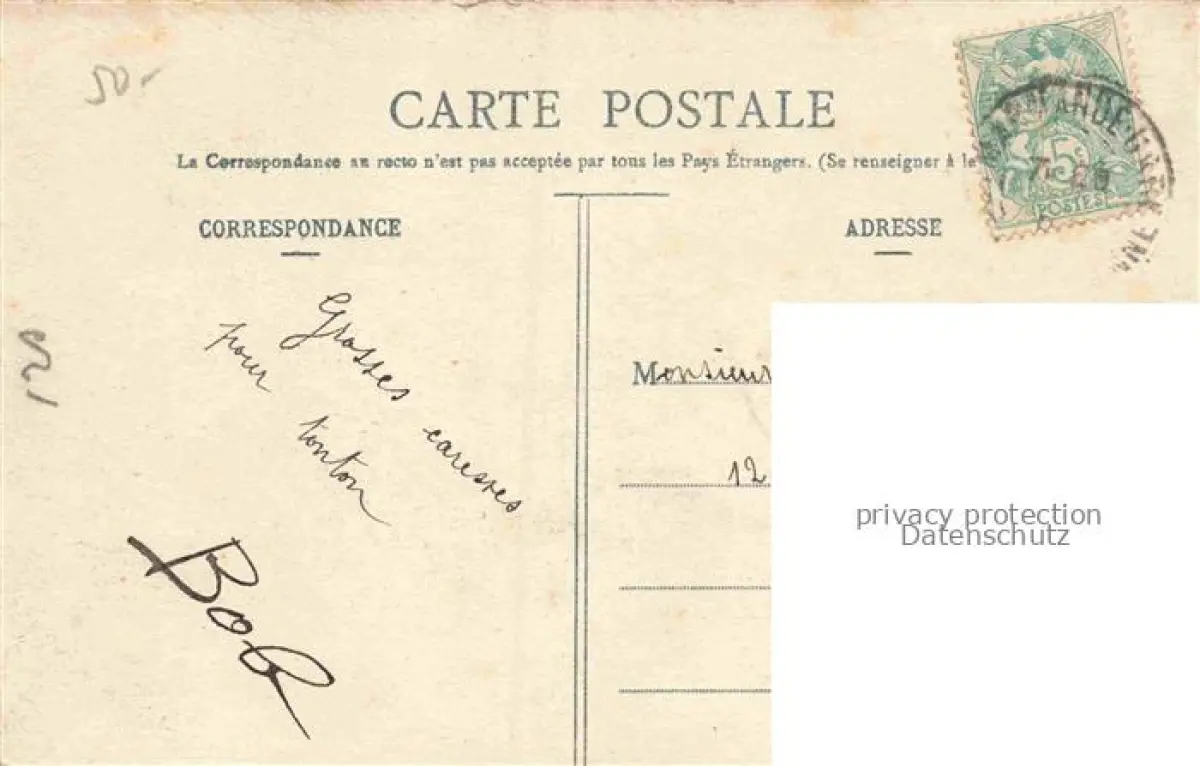 50.-
CARTE POSTALE
La Correspondance au recto n'est pas acceptée par tous les Pays Étrangers. (Se renseigner à le
5c
POSTES
CORRESPONDANCE
ADRESSE
Grosses caresses
pour tonton
Bob
Monsieur
12
privacy protection
Datenschutz